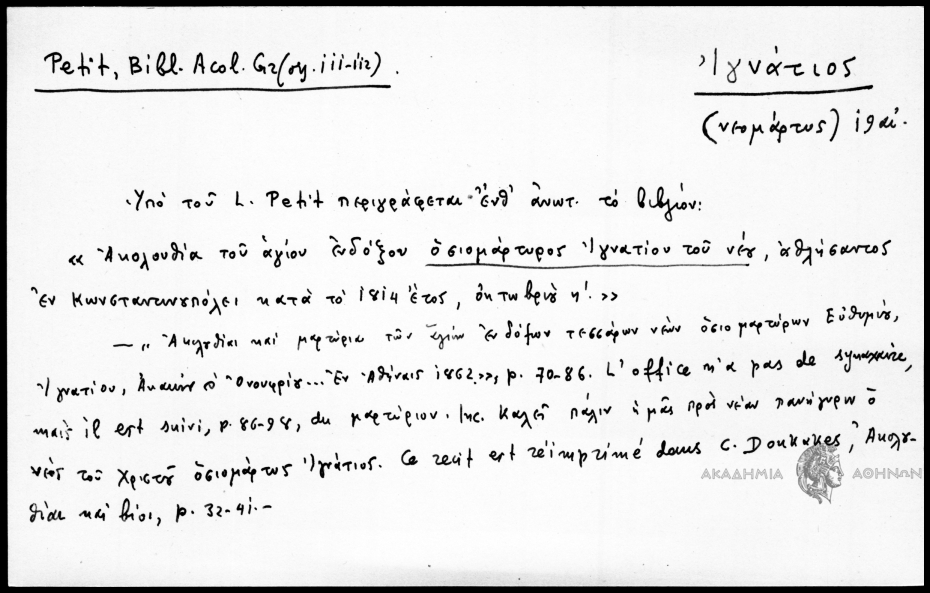 Petit, Bibl. Acol. Gr (σχ. 111-112).
Ἰγνάτιος
(νεομάρτυς) 19 αἰ.
Ὑπὸ τοῦ L. Petit περιγράφεται ἔνθ' ἄνωτ. τὸ βιβλίον:
« Ἀκολουθία τοῦ ἁγίου ἐνδόξου ὁσιομάρτυρος Ἰγνατίου τοῦ νέου, ἀθλήσαντος
ἐν Κωνσταντινουπόλει κατὰ τὸ 1814 ἔτος, ὀκτωβρίου η'. »
— " Ἀκολουθίαι καὶ μαρτύρια τῶν ἁγίων ἐνδόξων τεσσάρων νέων ὁσιομαρτύρων Εὐθυμίου,
Ἰγνατίου, Ἀκακίου Ὀνουφρίου... Ἐν Ἀθήναις 1862.», p. 70-86. L'office n'a pas de synaxaire,
mais il est suivi, p. 86-98, du μαρτύριον. Inc. Καλεῖ πάλιν ἡμᾶς πρὸς νέαν πανήγυριν ὁ
νέος τοῦ Χριστοῦ ὁσιομάρτυς Ἰγνάτιος. Ce récit est réimprimé dans C. Doukakes, Ἀκολου-
θίαι καὶ βίοι, p. 32-41.-
ΑΚΑΔΗΜΙΑ ΑΘΗΝΩΝ